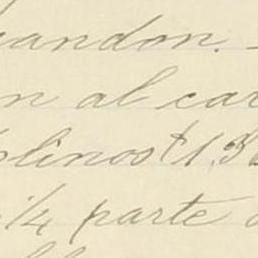 andon.
n al car
plinos t 1.3
1/4 parte